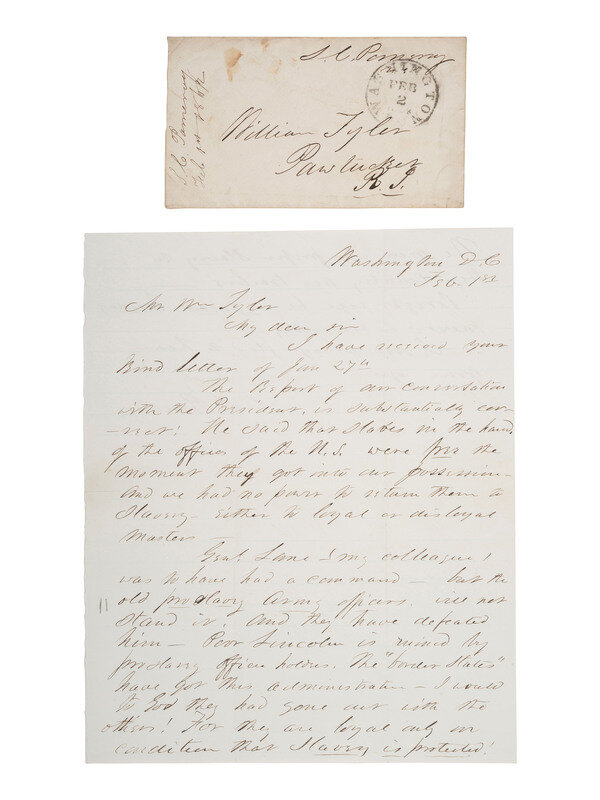 S. C. Pomeroy
WASHINGTON
FEB
2
William Tyler
Pawtucket
R. I.
S. C. Pomeroy
Feb 1st 1862
Washington D. C
Feb. 1st
Mr Wm Tyler
My dear sir
I have received your
kind letter of Jan 27th
The Report of our conversation
with the President, is substantially cor-
-rect! He said that slaves in the hands
of the officers of the U.S. were free the
moment they got into our possession-
And we had no power to return them to
Slavery- either to loyal or disloyal
masters
Genl. Lane (my colleague)
was to have had a command - but the
old proslavery Army officers. will not
stand it! And they have defeated
him- Poor Lincoln is ruined by
proslavery office holders. The "border States"
have got this administration - I would
to God they had gone out with the
others! For they are loyal only on
condition that Slavery is protected!